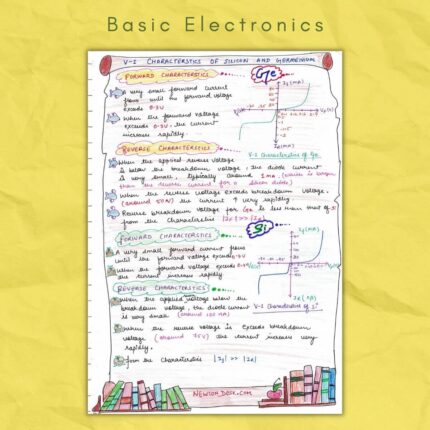 Basic Electronics
V-I CHARACTERSTICS OF SILICON AND GERMENIUM
FORWARD CHARACTERSTICS
Ge
A very small forward current
flows until the forward voltage
exceeds 0.3V
When the forward voltage
exceeds 0.3V, the current
increase rapidly.
REVERSE CHARACTERSTICS
When the applied reverse voltage
V-I Characteristics of Ge
is below the breakdown voltage, the diode current
is very small, typically around 1 ma. (which is larger
than the reverse current for a silicon diode)
When the reverse voltage exceeds breakdown voltage,
(around 50V) the current ↑ very rapidly.
Reverse breakdown voltage for Ge is less than that of Si
from the characteristics
FORWARD CHARACTERSTICS
Si
A very small forward current flows
until the forward voltage exceeds
When the forward voltage exceeds
the current increase rapidly
REVERSE CHARACTERSTICS
When the applied voltage below the
breakdown voltage, the diode current
V-I Characteristics of Si
is very small (around 100 nA)
When the reverse voltage is exceeds breakdown
voltage (around 75V) the current increases very
rapidly.
from the characteristics
NEWTONDESK.COM